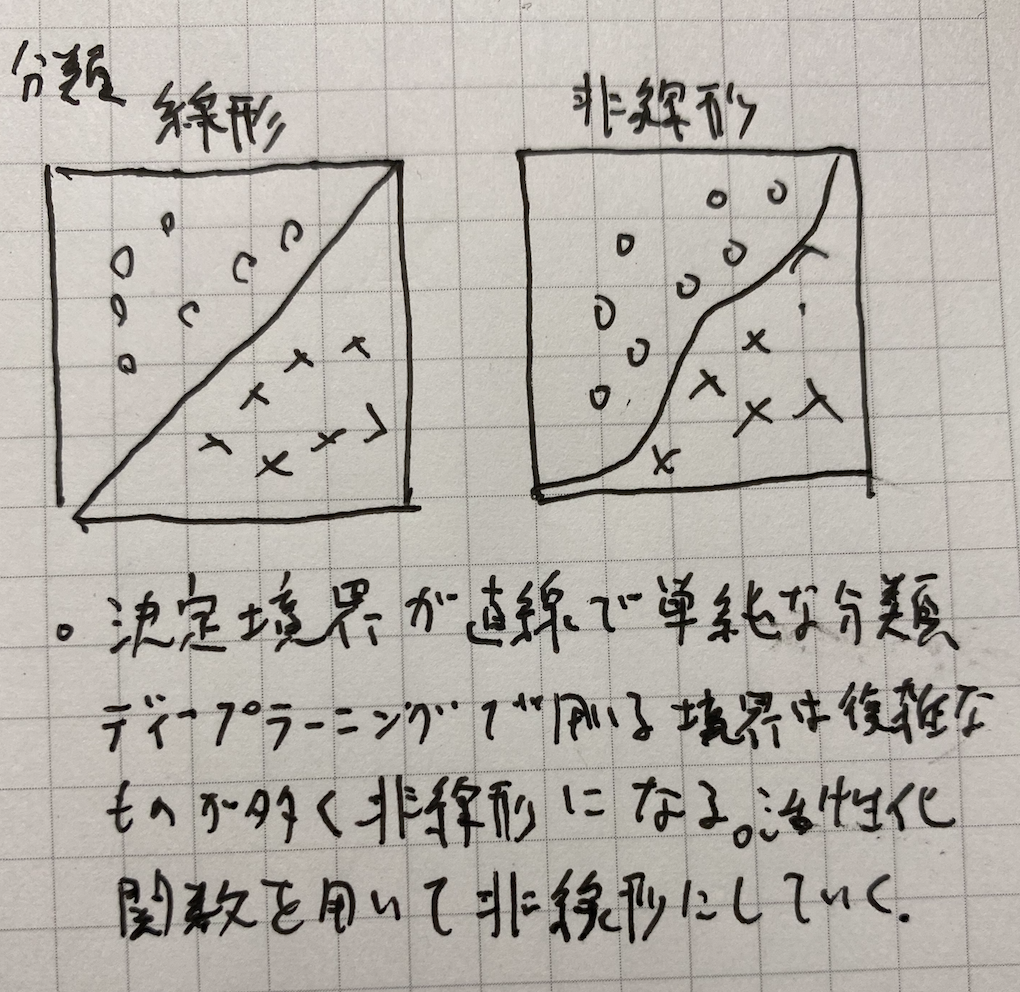 分類
線形
非線形
。決定境界が直線で単純な分類
ディープラーニングで用いる境界は複雑な
ものが多く非線形になる。活性化
関数を用いて非線形にしていく.